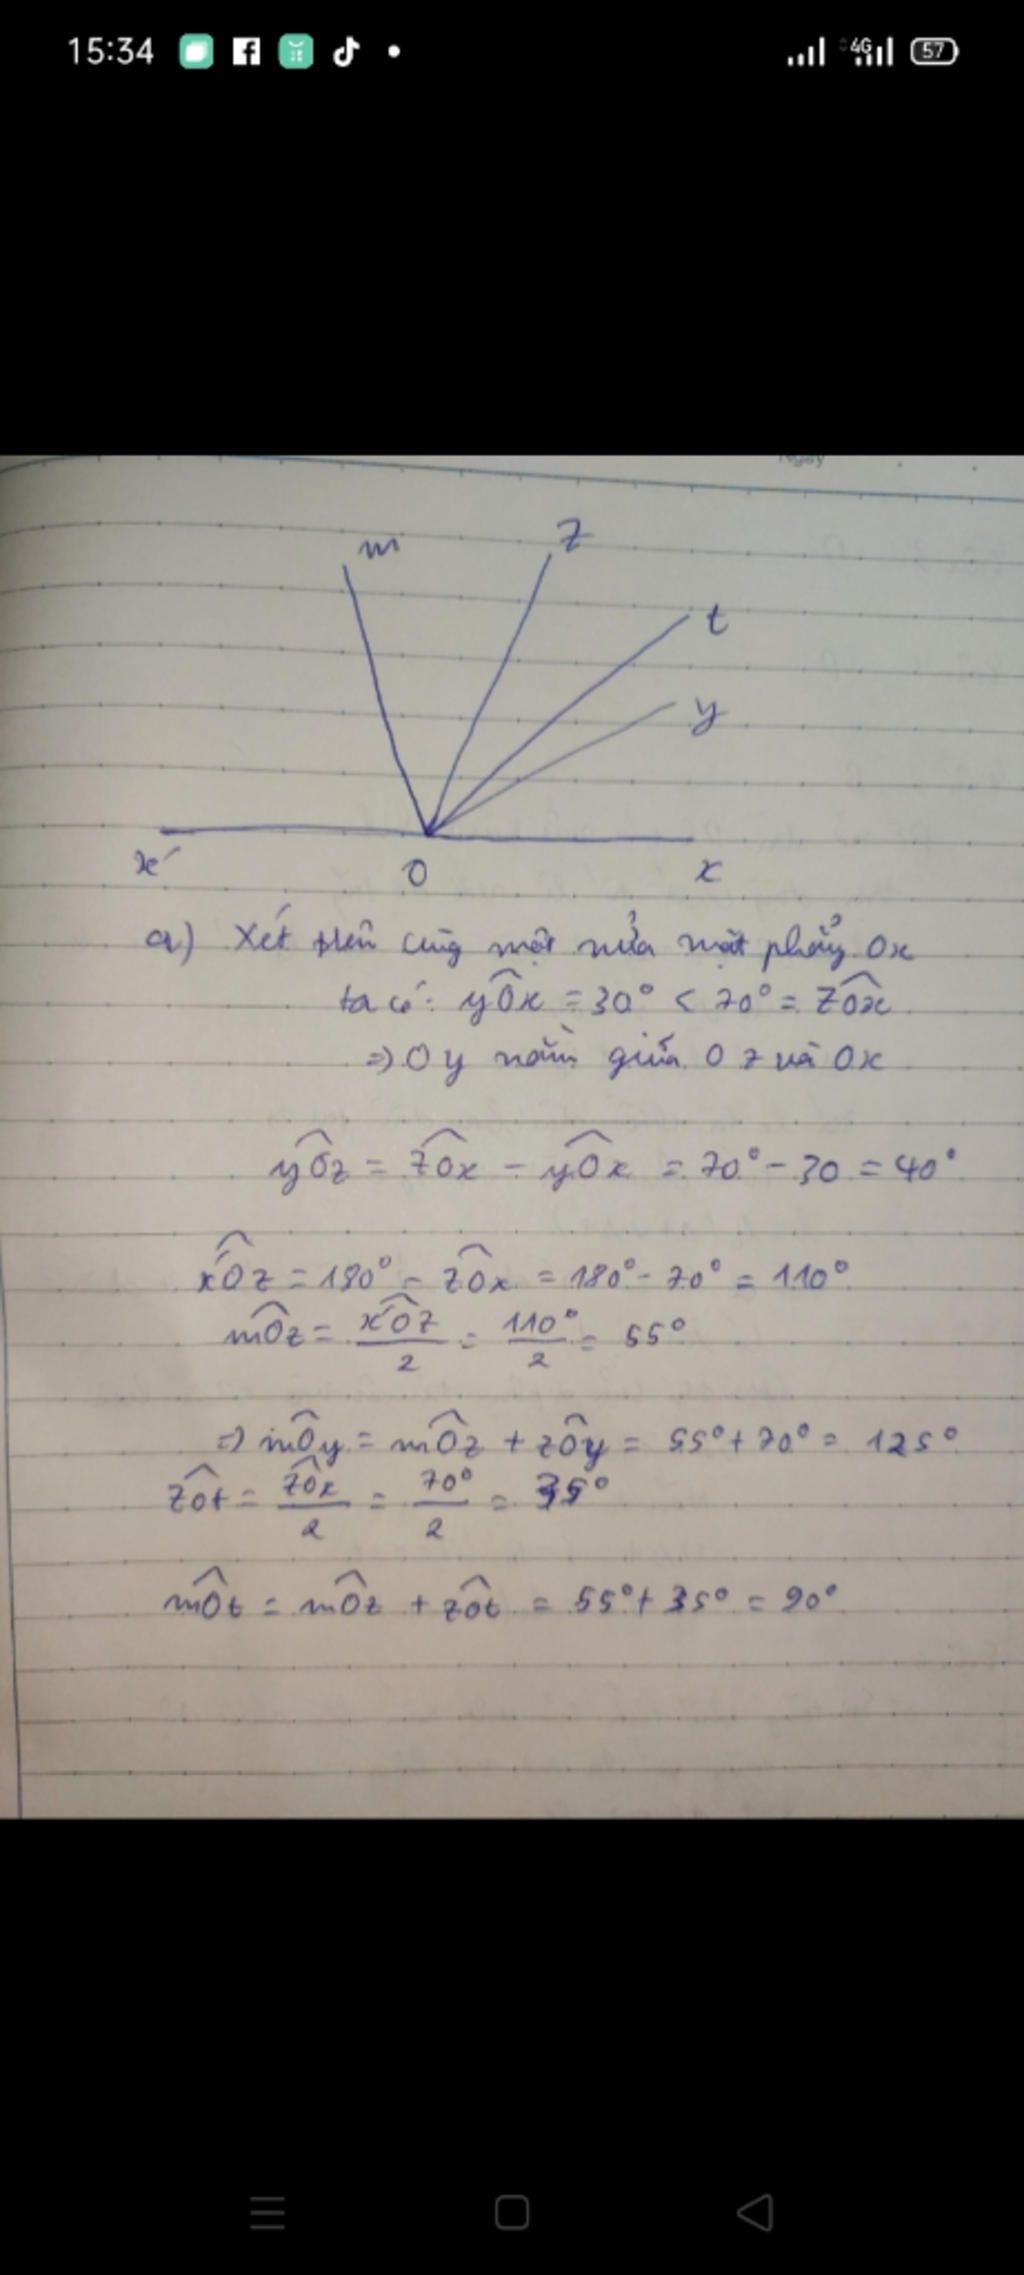 15:34 4G 57
Ngày
m
z
t
y
x' O x
a) Xét trên cùng một nửa mặt phẳng Ox
ta có: yÔx = 30° < 70° = zÔx
=> Oy nằm giữa Oz và Ox
yÔz = zÔx - yÔx = 70° - 30 = 40°
x'Ôz = 180° - zÔx = 180° - 70° = 110°
mÔz = x'Ôz/2 = 110°/2 = 55°
=> mÔy = mÔz + zÔy = 55° + 70° = 125°
zÔt = zÔx/2 = 70°/2 = 35°
mÔt = mÔz + zÔt = 55° + 35° = 90°